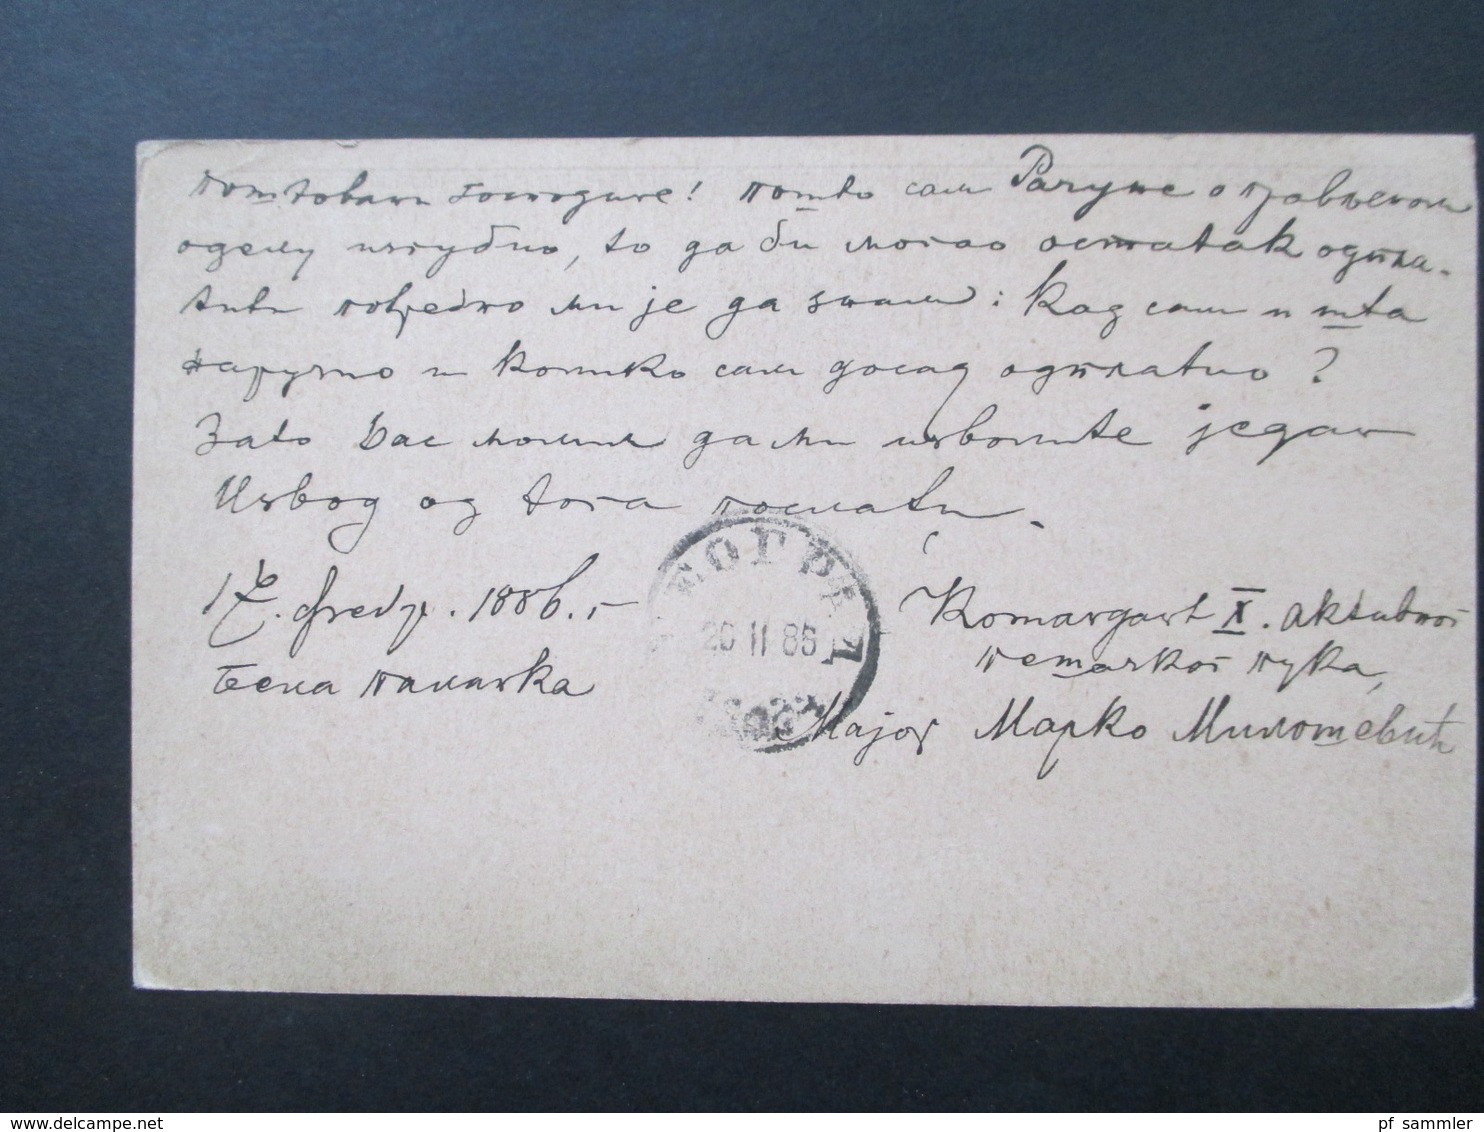 поштовани господине! пошто сам Рачуне о прављеном
оделу изгубио, то да би могао остатак одпла-
тити потребно ми је да знам: кад сам и шта
наручио и колико сам досад одплатио?
Зато Вас молим да ми изволите један
Извод од тога послати.
17. фебр. 1886. г.
Бела паланка
Командант X. активног
пешачког пука,
Мајор Марко Милошевић
БЕОГРАД
20 II 86
pf sammler
delcampe.net